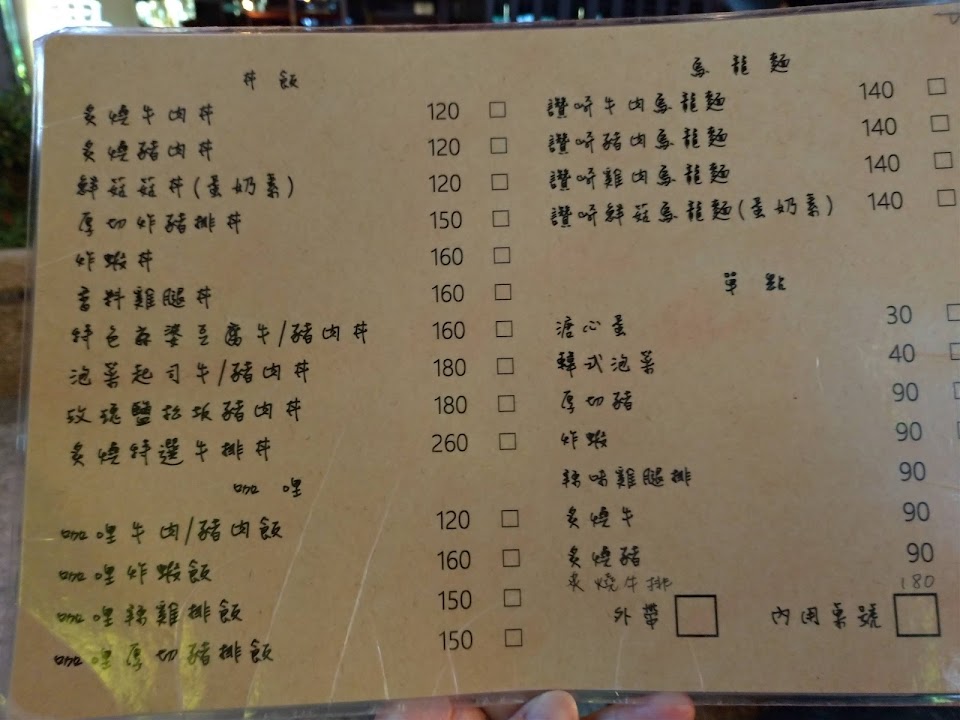 丼飯
炙燒牛肉丼 120 □
炙燒豬肉丼 120 □
鮮菇菇丼(蛋奶素) 120 □
厚切炸豬排丼 150 □
炸蝦丼 160 □
香料雞腿丼 160 □
特色麻婆豆腐牛/豬肉丼 160 □
泡菜起司牛/豬肉丼 180 □
玫瑰鹽松坂豬肉丼 180 □
炙燒特選牛排丼 260 □
咖哩
咖哩牛肉/豬肉飯 120 □
咖哩炸蝦飯 160 □
咖哩辣雞排飯 150 □
咖哩厚切豬排飯 150 □
烏龍麵
讚岐牛肉烏龍麵 140 □
讚岐豬肉烏龍麵 140 □
讚岐雞肉烏龍麵 140 □
讚岐鮮菇烏龍麵(蛋奶素) 140 □
單點
溏心蛋 30 □
韓式泡菜 40 □
厚切豬 90 □
炸蝦 90 □
辣味雞腿排 90
炙燒牛 90
炙燒豬 90
炙燒牛排 180
外帶 □ 內用桌號 □